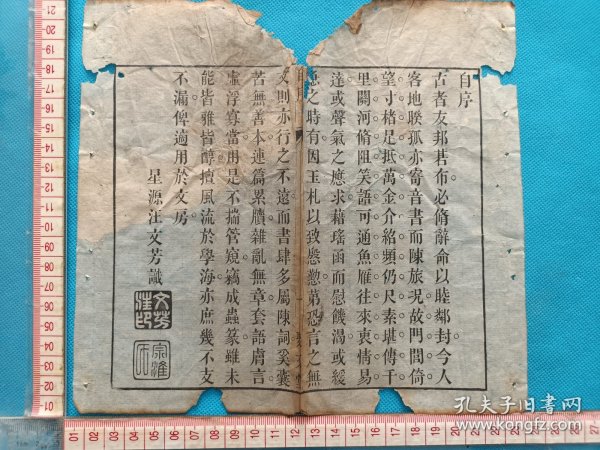 自序
古者友邦君布必脩辭命以睦鄰封今人
客地睽孤亦寄音書而陳旅況故門閭倚
望寸楮足抵萬金介紹頻仍尺素堪傳千
里關河脩阻笑語可通魚雁往來衷情易
達或聲氣之應求藉瑤函而慰饑渴或緩
急之時有因玉札以致慇懃第恐言之無
文則亦行之不遠而書肆多屬陳詞奚囊
苦無善本連篇累牘雜亂無章套語膚言
虛浮寡當用是不揣管窺竊成蟲篆雖未
能皆雅皆醇擅風流於學海亦庶幾不支
不漏俾適用於文房
星源汪文芳識
文芳
汪印
孔夫子旧书网
www.kongfz.com